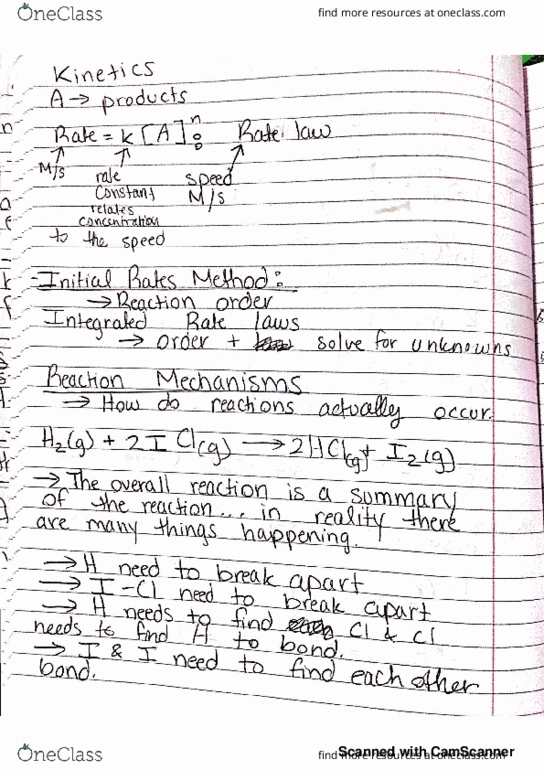 OneClass
find more resources at oneclass.com
Kinetics
A → products
Rate = k [A]ⁿ₀ Rate law
M/s rate speed
constant M/s
relates
concentration
to the speed
Initial Rates Method:
→ Reaction order
Integrated Rate laws
→ order + solve for unknowns
Reaction Mechanisms
→ How do reactions actually occur.
H₂(g) + 2ICl(g) → 2HCl(g) + I₂(g)
→ The overall reaction is a summary
of the reaction... in reality there
are many things happening.
→ H need to break apart
→ I-Cl need to break apart
→ H needs to find Cl & Cl
needs to find H to bond.
→ I & I need to find each other
bond.
OneClass
find more resources at oneclass.com
Scanned with CamScanner